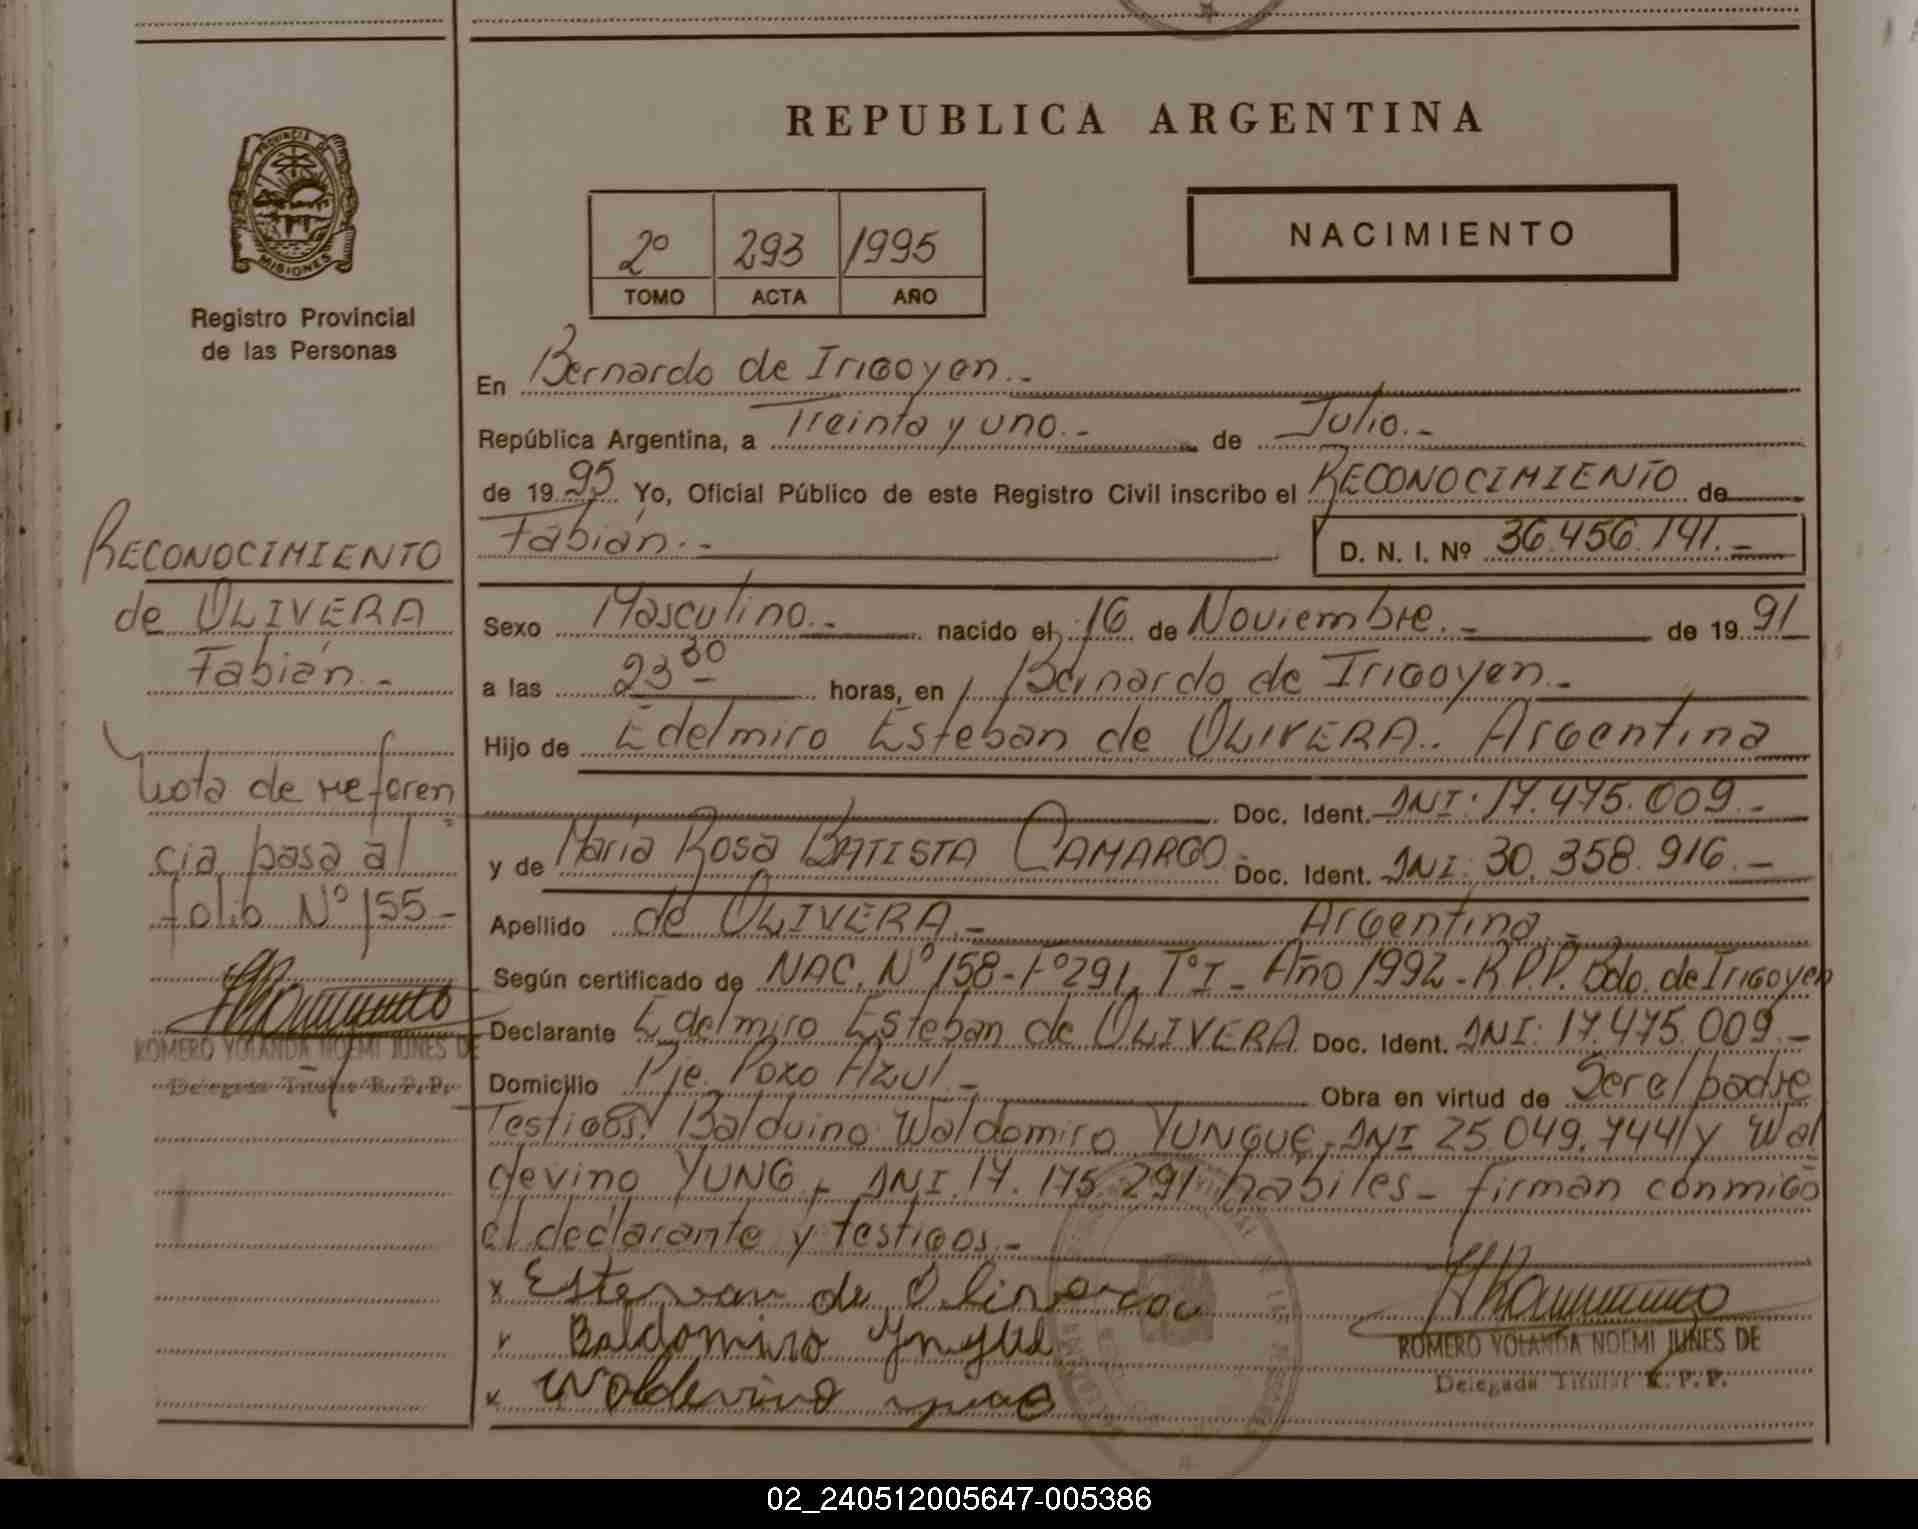 PROVINCIA DE
MISIONES
Registro Provincial
de las Personas
RECONOCIMIENTO
de OLIVERA
Fabián.-
Nota de referen
cia pasa al
folio Nº 155-
ROMERO YOLANDA NOEMI JUNES DE
Delegada Titular R.P.P.
REPUBLICA ARGENTINA
2º 293 1995
TOMO ACTA AÑO
NACIMIENTO
En Bernardo de Irigoyen.-
República Argentina, a Treinta y uno.- de Julio.-
de 1995 Yo, Oficial Público de este Registro Civil inscribo el RECONOCIMIENTO de
Fabián.- D. N. I. Nº 36.456.191.-
Sexo Masculino.- nacido el 16 de Noviembre.- de 1991
a las 23 30 horas, en Bernardo de Irigoyen.-
Hijo de Edelmiro Esteban de OLIVERA. Argentina
Doc. Ident. DNI: 17.475.009.-
y de María Rosa BATISTA CAMARGO Doc. Ident. DNI: 30.358.916.-
Apellido de OLIVERA.- Argentina.-
Según certificado de NAC. Nº 158-Fº291, Tº I- Año 1992-R.P.P. Bdo. de Irigoyen
Declarante Edelmiro Esteban de OLIVERA Doc. Ident. DNI: 17.475.009.-
Domicilio Pje. Pozo Azul.- Obra en virtud de Ser el padre
Testigos: Balduino Waldomiro YUNGUE, DNI 25.049.744 y Wal
devino YUNG.- DNI. 17.175.291 habiles- firman conmigo
el declarante y testigos.-
x Estevan de Oliveira
x Baldomiro
x Waldevino
ROMERO YOLANDA NOEMI JUNES DE
Delegada Titular R.P.P.
02_240512005647-005386